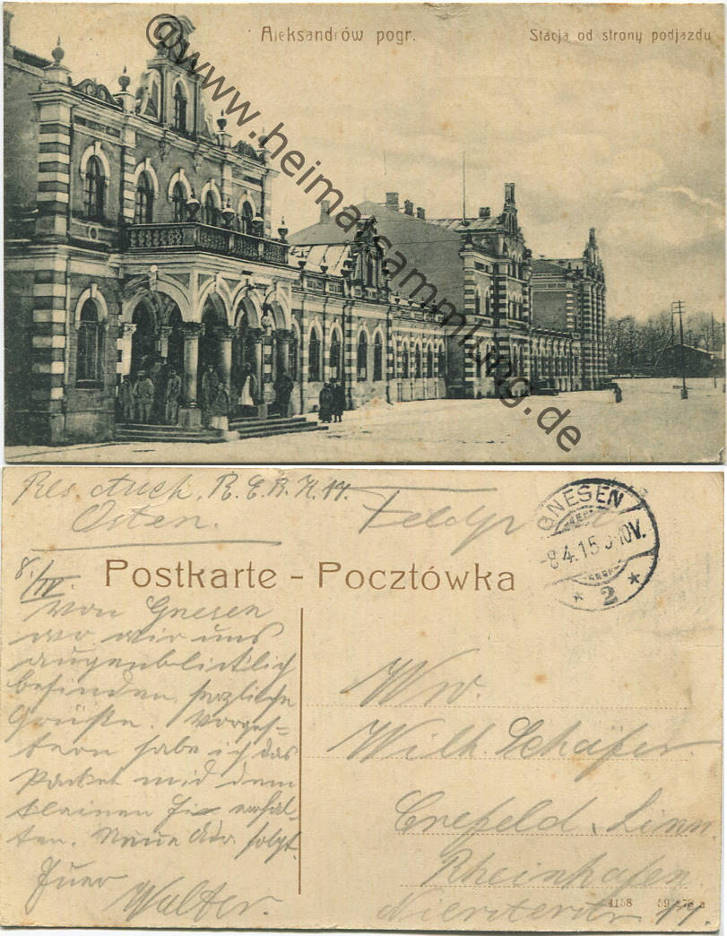 Aleksandrów pogr.
Stacja od strony podjazdu
@www.heimatsammlung.de
Osten.
Feldpost
GNESEN
-8.4.15 9-10V.
* 2 *
8/IV.
Postkarte - Pocztówka
Von Gnesen
wo wir uns
augenblicklich
befinden herzliche
Grüße. Vorges-
tern habe ich das
Packet mid dem
kleinen erhal-
ten. Neue Adr. folgt.
Euer
Walter.
Ww.
Wilh. Schäfer.
Crefeld Linn
Rheinhafen
4158